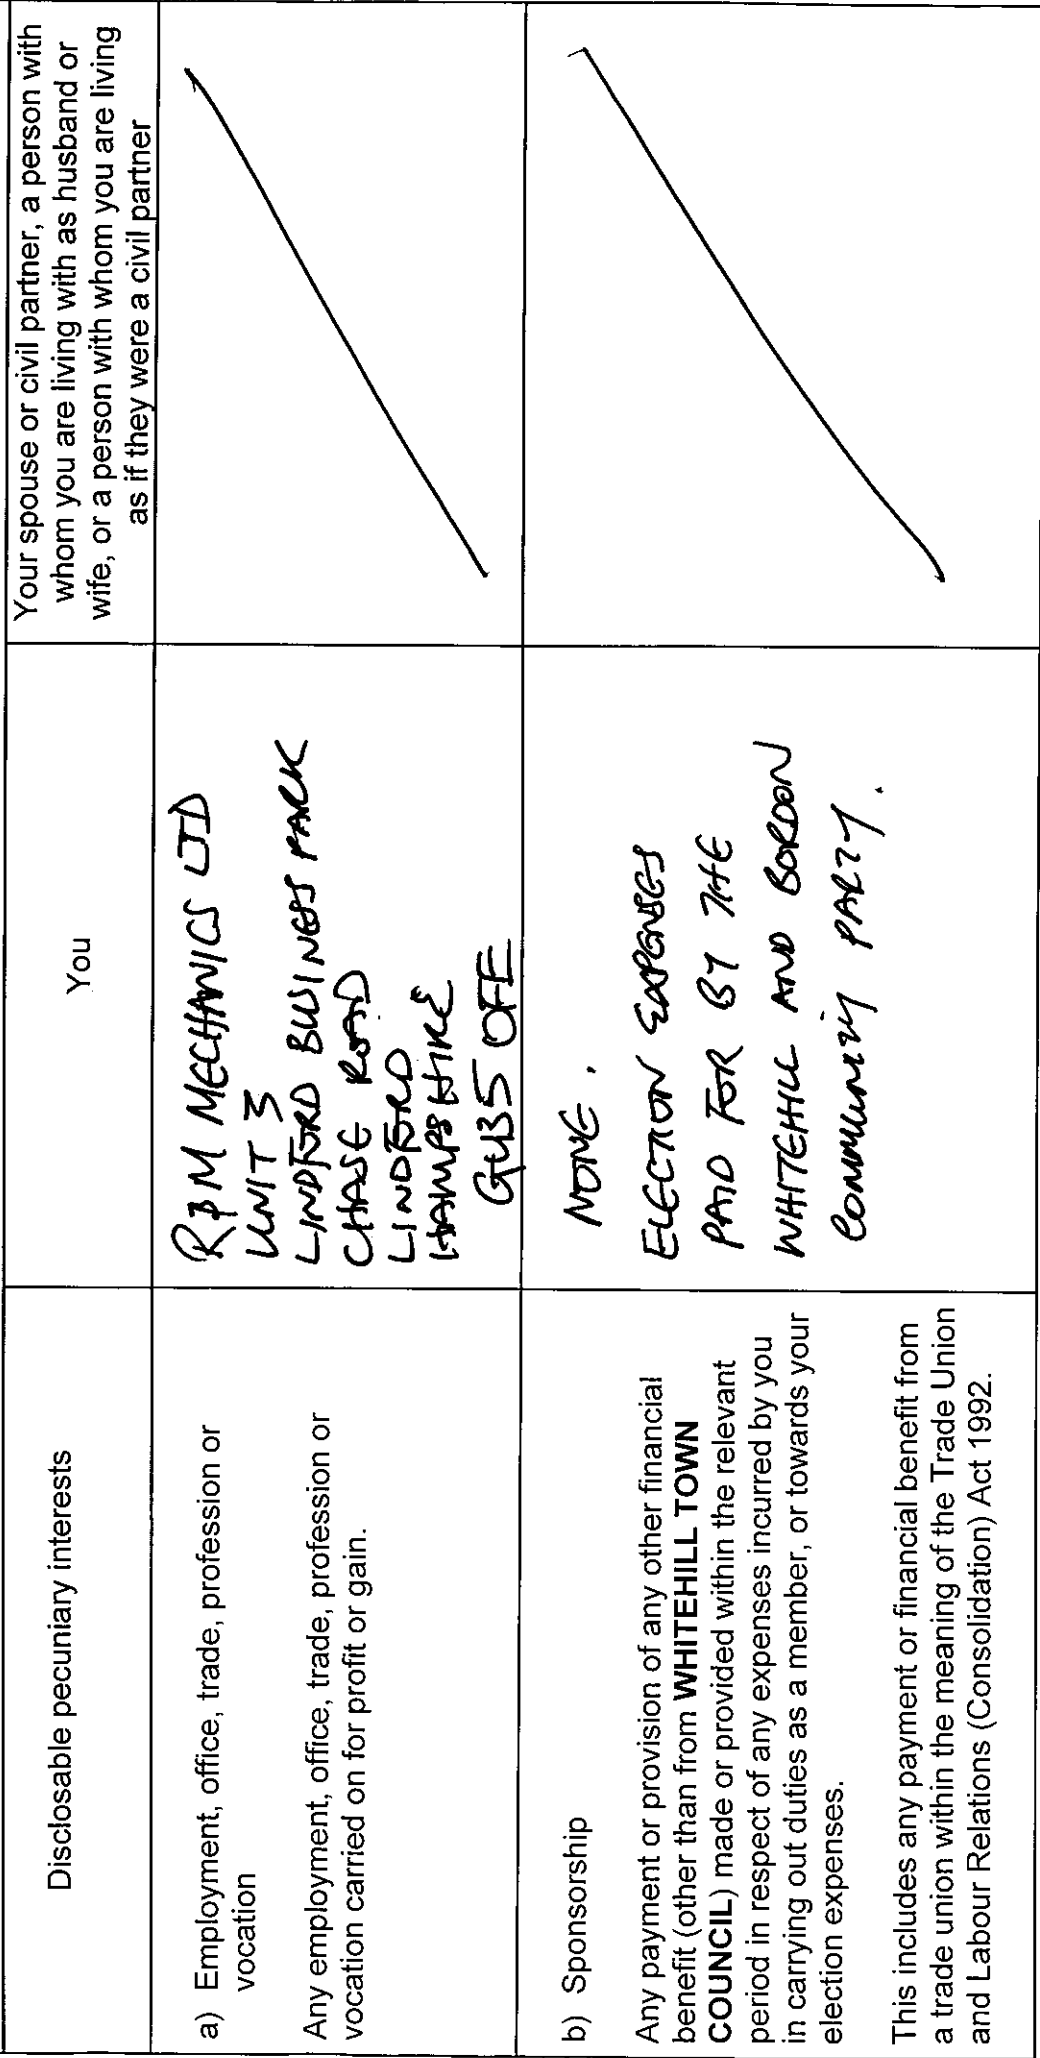 Disclosable pecuniary interests
You
Your spouse or civil partner, a person with
whom you are living with as husband or
wife, or a person with whom you are living
as if they were a civil partner
a) Employment, office, trade, profession or
vocation
Any employment, office, trade, profession or
vocation carried on for profit or gain.
MECHANICS LTD
UNIT 3
LINDFORD BUSINESS PARK
CHASE ROAD
LINDFORD
HAMPSHIRE
GU35 0FE
b) Sponsorship
Any payment or provision of any other financial
benefit (other than from WHITEHILL TOWN
COUNCIL) made or provided within the relevant
period in respect of any expenses incurred by you
in carrying out duties as a member, or towards your
election expenses.
This includes any payment or financial benefit from
a trade union within the meaning of the Trade Union
and Labour Relations (Consolidation) Act 1992.
NONE.
ELECTION EXPENSES
PAID FOR BY THE
WHITEHILL AND BORDON
COMMUNITY PARTY.